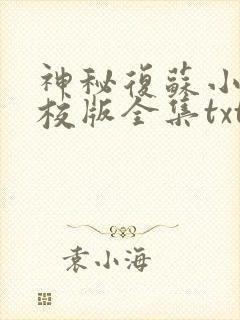 神秘復蘇小
校版全集txt
袁小海